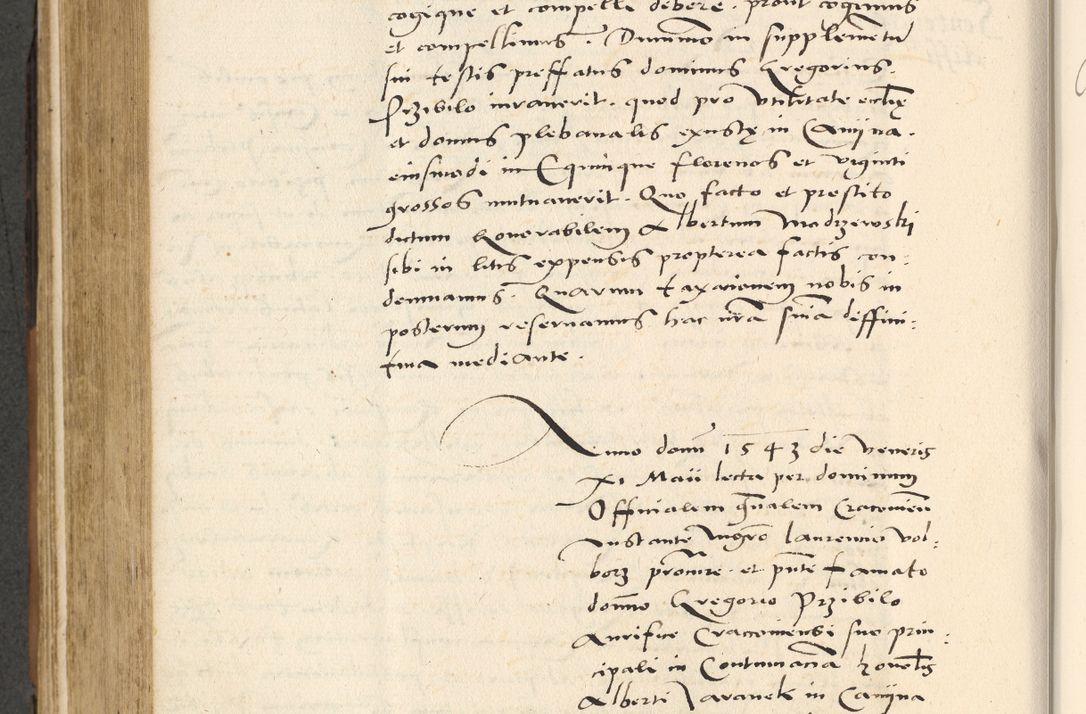 cogique et compelli debere. prout cogimus
et compellimus. Dummodo in supplementu
sui testis preffatus dominus Gregorius
Przibilo iuraverit. quod pro utilitate ecclię
et domus plebanalis existę in Caniina.
eiusmodi quinque florenos et viginti
grossos mutuaverit. Quo facto et prestito
dictum honorabilem Albertum Modrzewski
sibi in litis expensis propterea factis con:
demnamus. Quarum taxacionem nobis in
posterum reservamus hac nrã sniã deffini:
tiva mediante.
Anno domi 1543 die veneris
xi Maii lecta per dominum
Officialem gnalem Cracovien
instante mgro Laurencio vol:
borz procure. et pnte famato
domno Gregorio Przibilo
Aurifice Cracoviensi suo prin:
cipali in Contumaciã honoblis
Alberti Taranek in Caniina